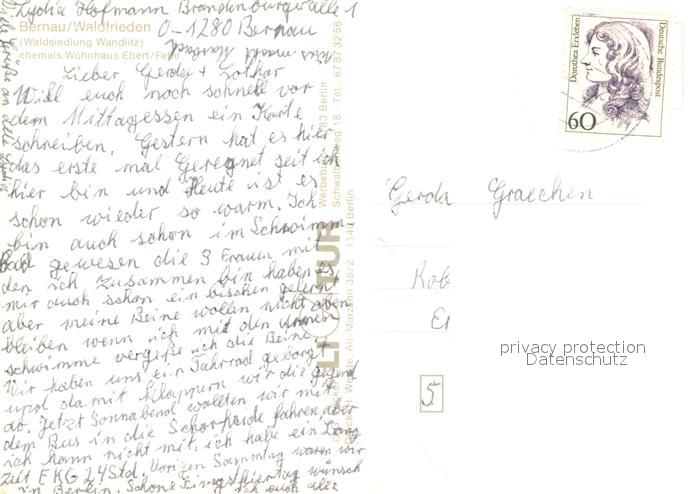 Lydia Hofmann Brandenburgerallee 1
O-1280 Bernau
Bernau/Waldfrieden
(Waldsiedlung Wandlitz)
ehemals Wohnhaus Ebert/Felfe
Lieber Gerda + Lothar
Will euch noch schnell vor
dem Mittagessen ein Karte
schreiben. Gestern hat es hier
das erste mal Geregnet seit ich
hier bin und Heute ist es
schon wieder so warm. Ich
bin auch schon im Schwimm
bad gewesen die 3 Frauen mit
den ich zusammen bin haben es
mir auch schon ein bischen gelernt
aber meine Beine wollen nicht oben
bleiben wenn ich mit den Armen
schwimme vergiße ich die Beine.
Wir haben uns ein Fahrrad geborgt
und damit klappern wir die gegend
ab. Jetzt Sonnabend wollten wir mit
dem Bus in die Schorfheide fahren, aber
ich kann nicht mit, ich habe ein Lang
zeit EKG 24 Std. Vorigen Sonntag waren wir
in Berlin. Schöne Pfingstfeiertag wünsch
ich euch alle
Viele Grüße an alle
Deutsche Bundespost
Dorothea Erxleben
60
Gerda Graechen
Rob
Er
5
privacy protection
Datenschutz